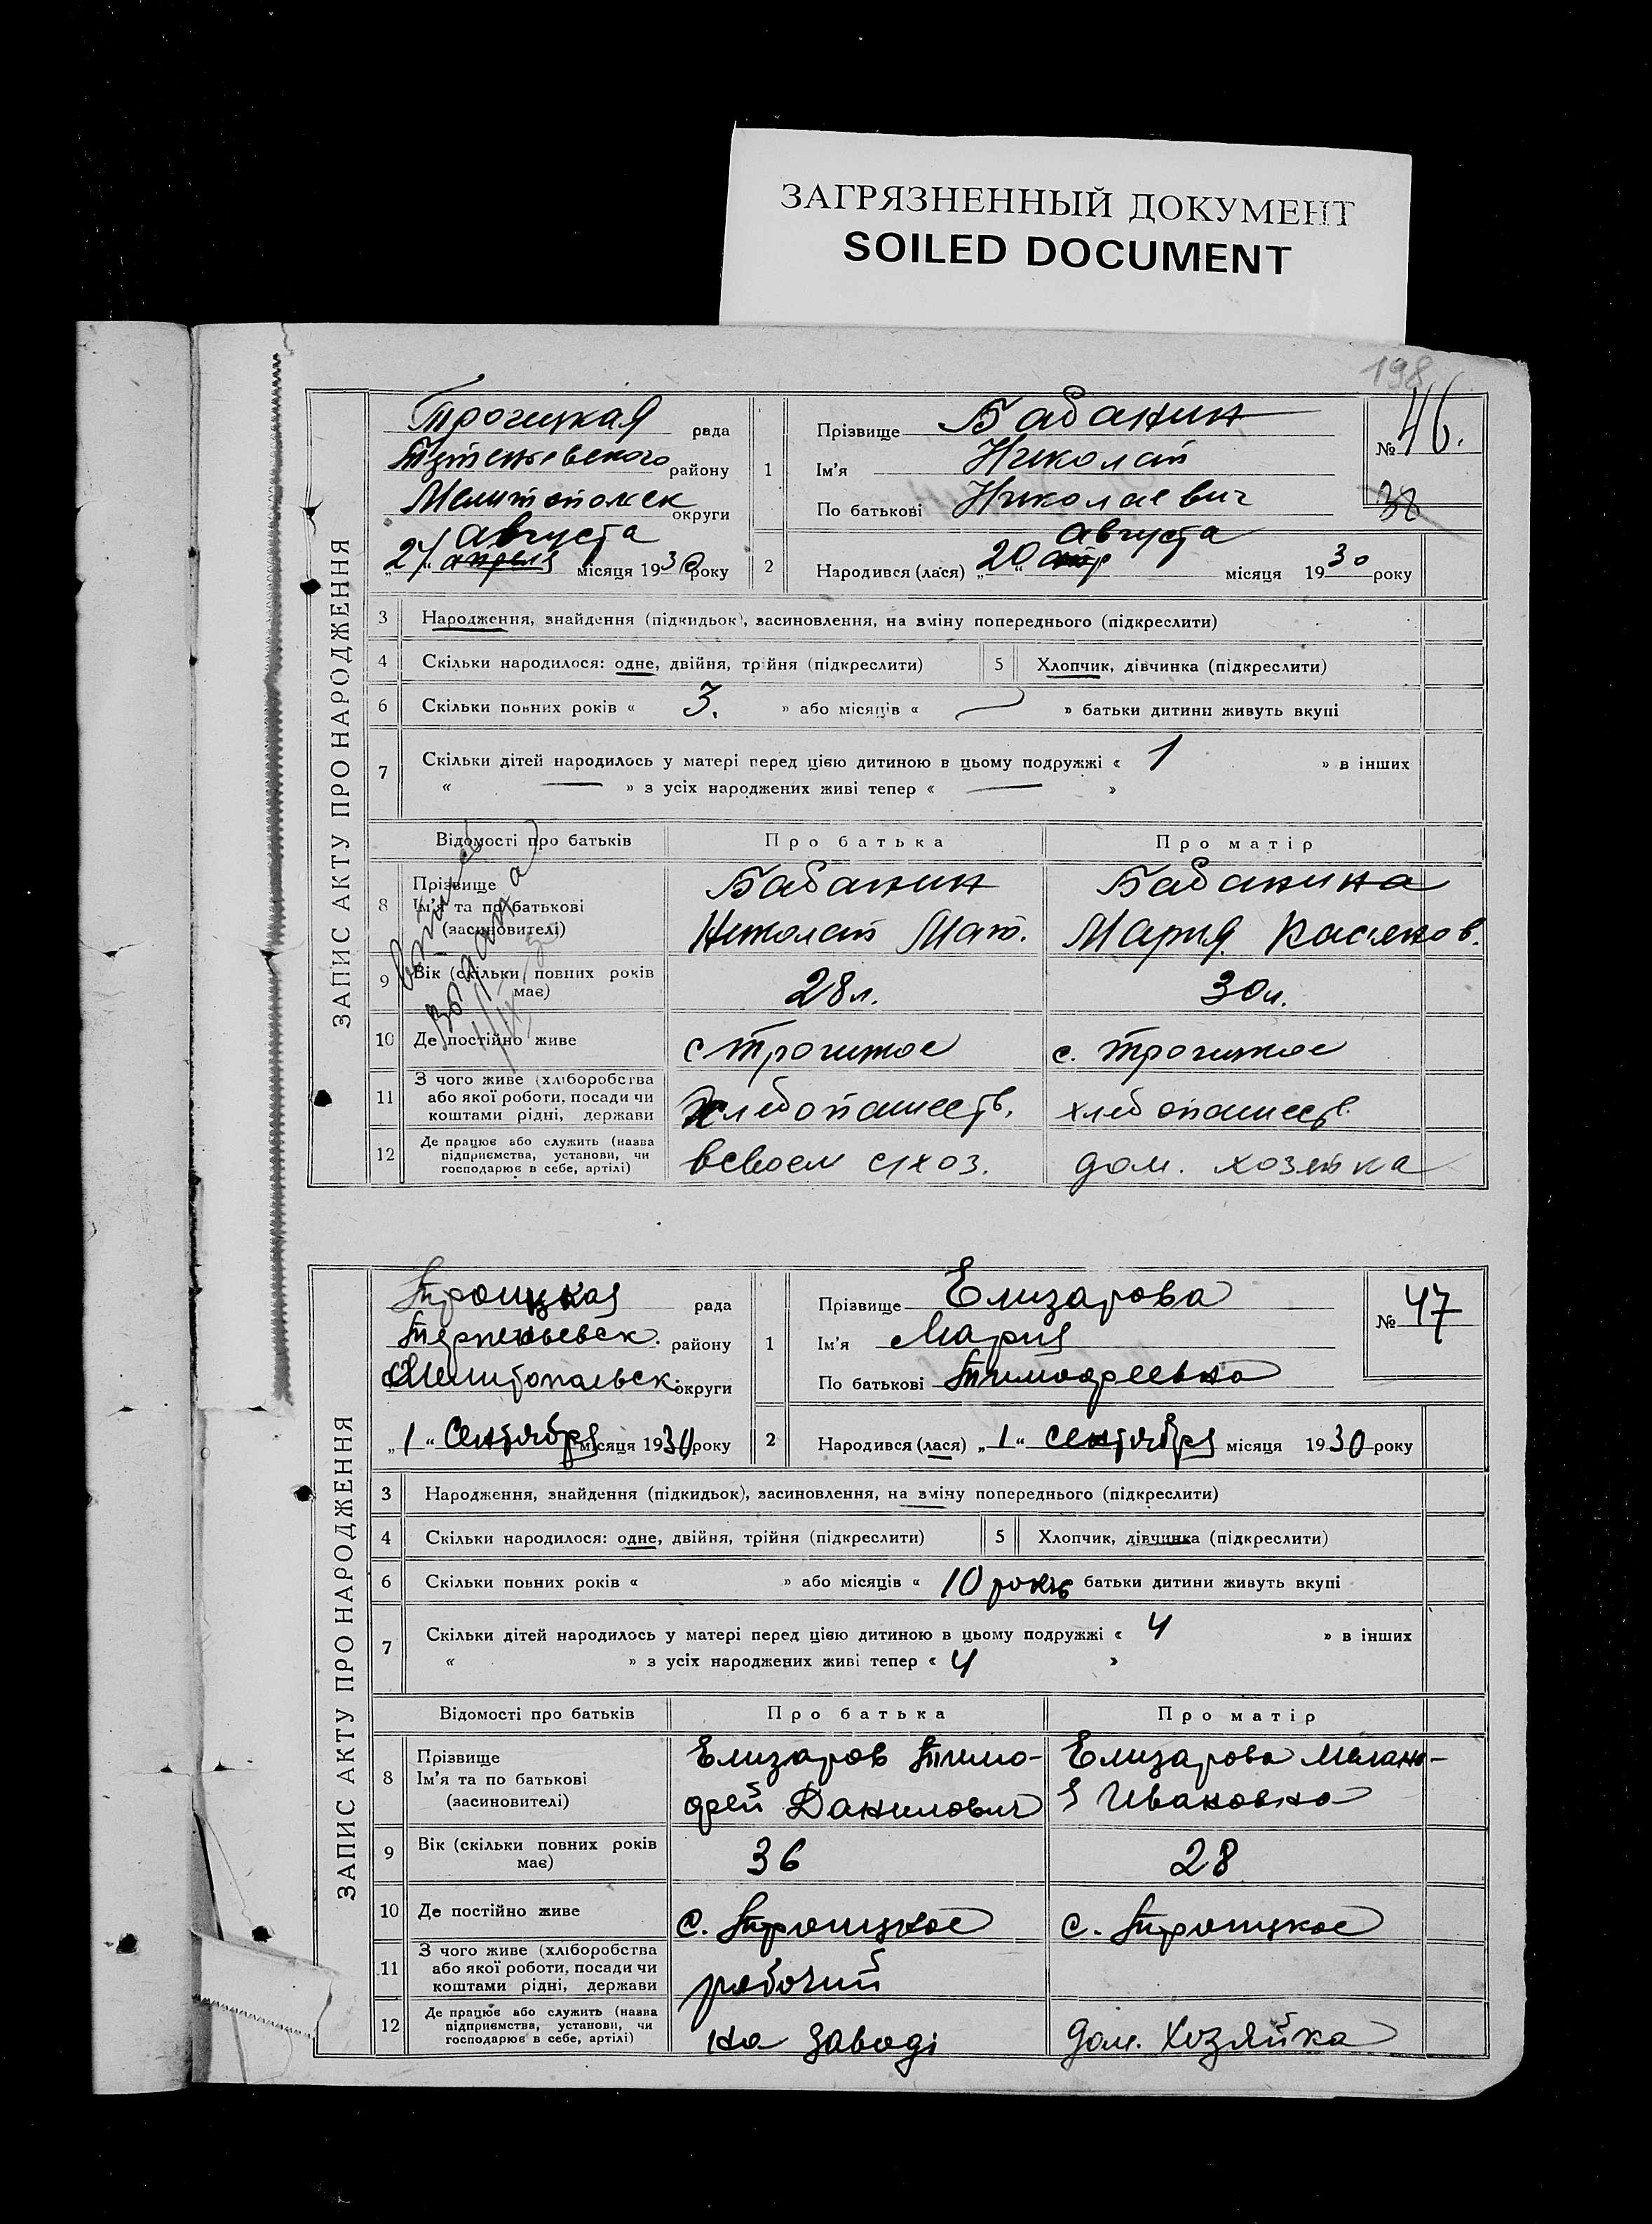 ЗАГРЯЗНЕННЫЙ ДОКУМЕНТ
SOILED DOCUMENT
198
ЗАПИС АКТУ ПРО НАРОДЖЕННЯ
Троицкая рада
району
округи
августа
апреля місяця 1930 року
1
Прізвище Бабанин
Ім'я Николай
По батькові Николаевич
№ 46.
38
2
августа
Народився (лася) „20“ апр місяця 1930 року
3 Народження, знайдення (підкидьок), засиновлення, на зміну попереднього (підкреслити)
4 Скільки народилося: одне, двійня, трійня (підкреслити) 5 Хлопчик, дівчинка (підкреслити)
6 Скільки повних років « 3. » або місяців « » батьки дитини живуть вкупі
7 Скільки дітей народилось у матері перед цією дитиною в цьому подружжі « 1 » в інших
« — » з усіх народжених живі тепер « — »
Відомості про батьків Про батька Про матір
8 Прізвище
Ім'я та по батькові
(засиновителі)
Бабанин
Николай Мат.
Бабанина
Мария Касянов.
9 Вік (скільки повних років має) 28 л. 30 л.
10 Де постійно живе с Троицкое с. Троицкое
11 З чого живе (хліборобства
або якої роботи, посади чи
коштами рідні, держави
хлебопашеств. хлебопашеств.
12 Де працює або служить (назва
підприємства, установи, чи
господарює в себе, артілі)
всвоем с/хоз. дом. хозяйка
ЗАПИС АКТУ ПРО НАРОДЖЕННЯ
Троицкая рада
Терпеньевск. району
Мелитопольск. округи
„1“ Сентября місяця 1930 року
1
Прізвище Елизарова
Ім'я Мария
По батькові Тимофеевна
№ 47
2
Народився (лася) „1“ сентября місяця 1930 року
3 Народження, знайдення (підкидьок), засиновлення, на зміну попереднього (підкреслити)
4 Скільки народилося: одне, двійня, трійня (підкреслити) 5 Хлопчик, дівчинка (підкреслити)
6 Скільки повних років « » або місяців « 10 років батьки дитини живуть вкупі
7 Скільки дітей народилось у матері перед цією дитиною в цьому подружжі « 4 » в інших
« » з усіх народжених живі тепер « 4 »
Відомості про батьків Про батька Про матір
8 Прізвище
Ім'я та по батькові
(засиновителі)
Елизаров Тимо-
фей Данилович
Елизарова Мелань-
я Ивановна
9 Вік (скільки повних років має) 36 28
10 Де постійно живе с. Троицкое с. Троицкое
11 З чого живе (хліборобства
або якої роботи, посади чи
коштами рідні, держави
робочий
12 Де працює або служить (назва
підприємства, установи, чи
господарює в себе, артілі)
на заводі дом. Хозяйка